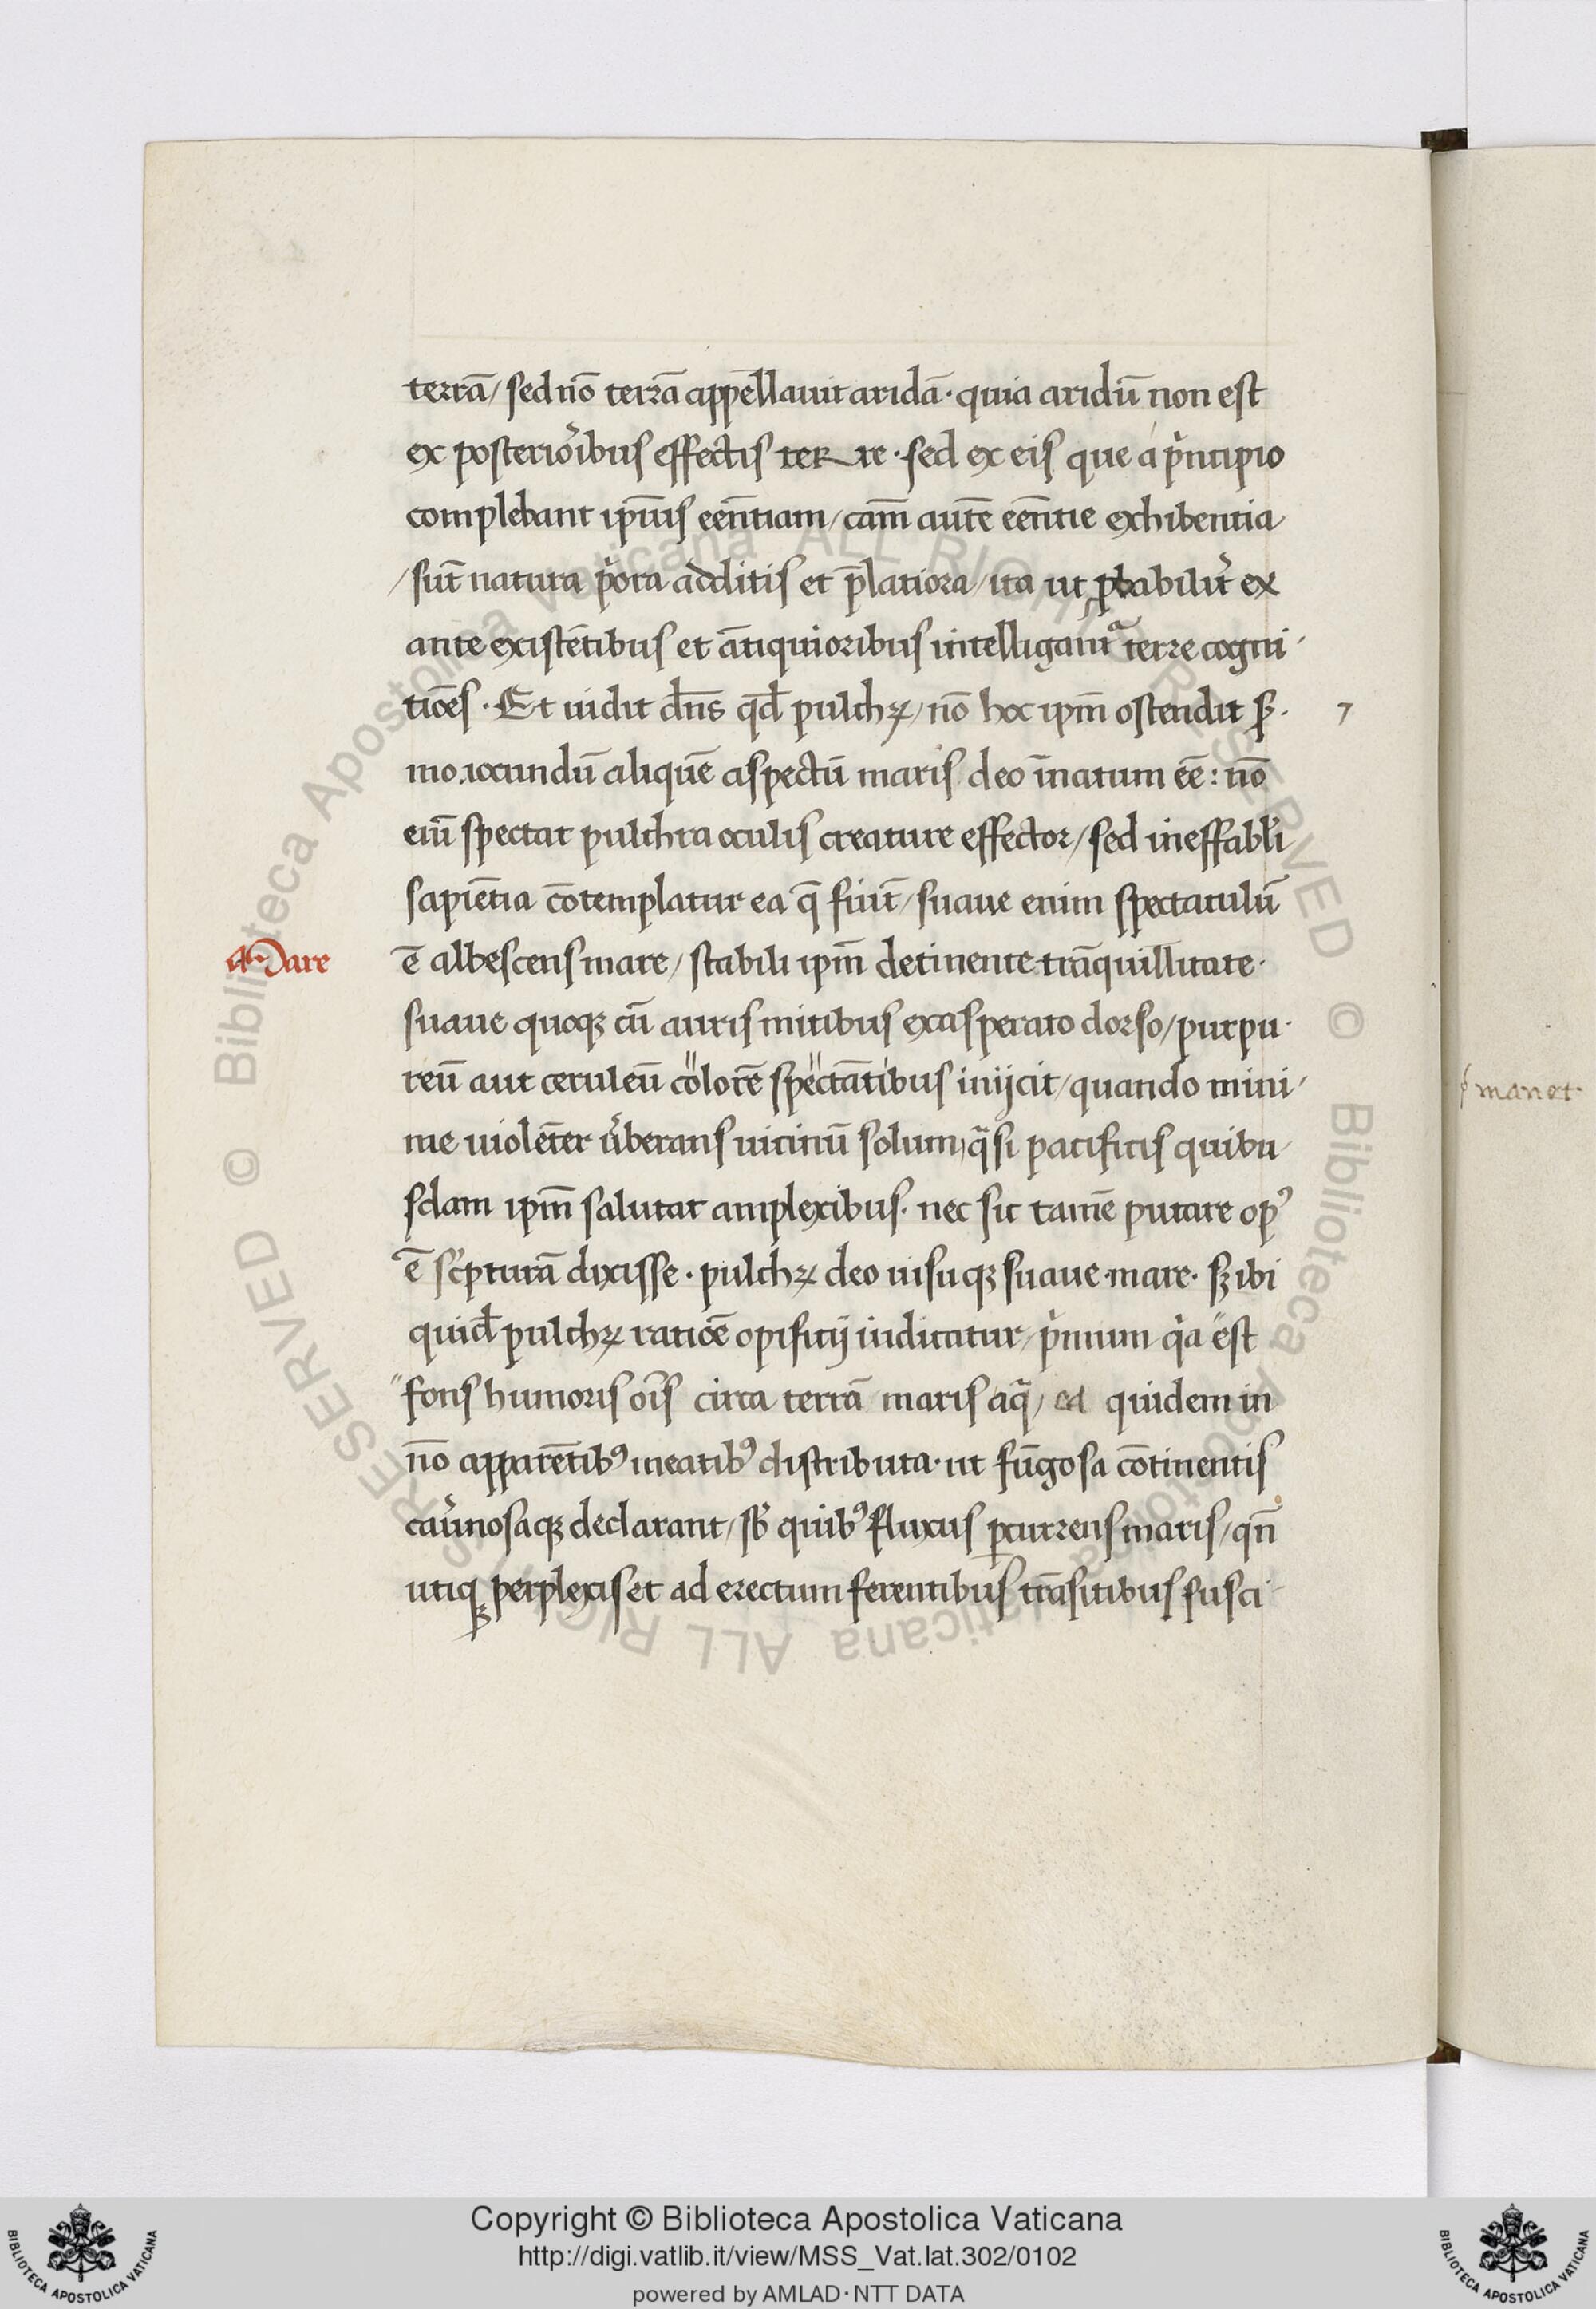 terrā/ sed nō terrā appellauit aridā· quia aridū non est
ex posterioribus effectis terre· sed ex eis que a pͥncipio
complebant ipīus eēntiam/ cām autē eēntie exhibentia
/sūt natura pͥora additis et p̄latiora/ ita ut ꝓbabilit̉ ex
ante existētibus et ātiquioribus intelligant᷑ terre cogni-
tiōes· Et uidit dn̄s qd̄ pulchꝝ/ nō hoc ipm̄ ostendit ẜ-
mo. iocundū aliquē aspectū maris deo īnatum eē: nō
eni᷑ spectat pulchra oculis creature effector/ sed ineffabli
sapiētia cōtemplatur ea q̄ fiūt/ suaue enim spectaculū
Mare
ē albescens mare/ stabili ipm̄ detinente trāquillitate·
suaue quoqꝫ cū auris mitibus exasperato dorso/ purpu-
reū aut ceruleū colorē spectātibus inijcit/ quando mini-
me uiolēter u̓berans uicinū solum/ q̄si pacificis quibu-
sdam ipm̄ salutat amplexibus. nec sic tamē putare opꝰ
ē sc̓pturā dixisse· pulchꝝ deo uisuqꝫ suaue mare· sꝫ ibi
quid̄ pulchꝝ ratiōe opificij iudicatur/ pͥmum qͥa est
fons humoris oīs circa terrā maris aq̄/ ea quidem in
nō apparētibꝰ meatibꝰ distributa· ut fūgosa cōtinentis
cau̓nosaqꝫ declarant/ sb̓ quibꝰ fluxus ꝑcurrens maris/ qn̄
utiqꝫ perplexis et ad erectum ferentibus trāsitibus fusci-
7
manet·
© Biblioteca Apostolica Vaticana ALL RIGHTS RESERVED © Biblioteca Apostolica Vaticana ALL RIGHTS RESERVED
Copyright © Biblioteca Apostolica Vaticana
http://digi.vatlib.it/view/MSS_Vat.lat.302/0102
powered by AMLAD·NTT DATA
BIBLIOTECA APOSTOLICA VATICANA
BIBLIOTECA APOSTOLICA VATICANA